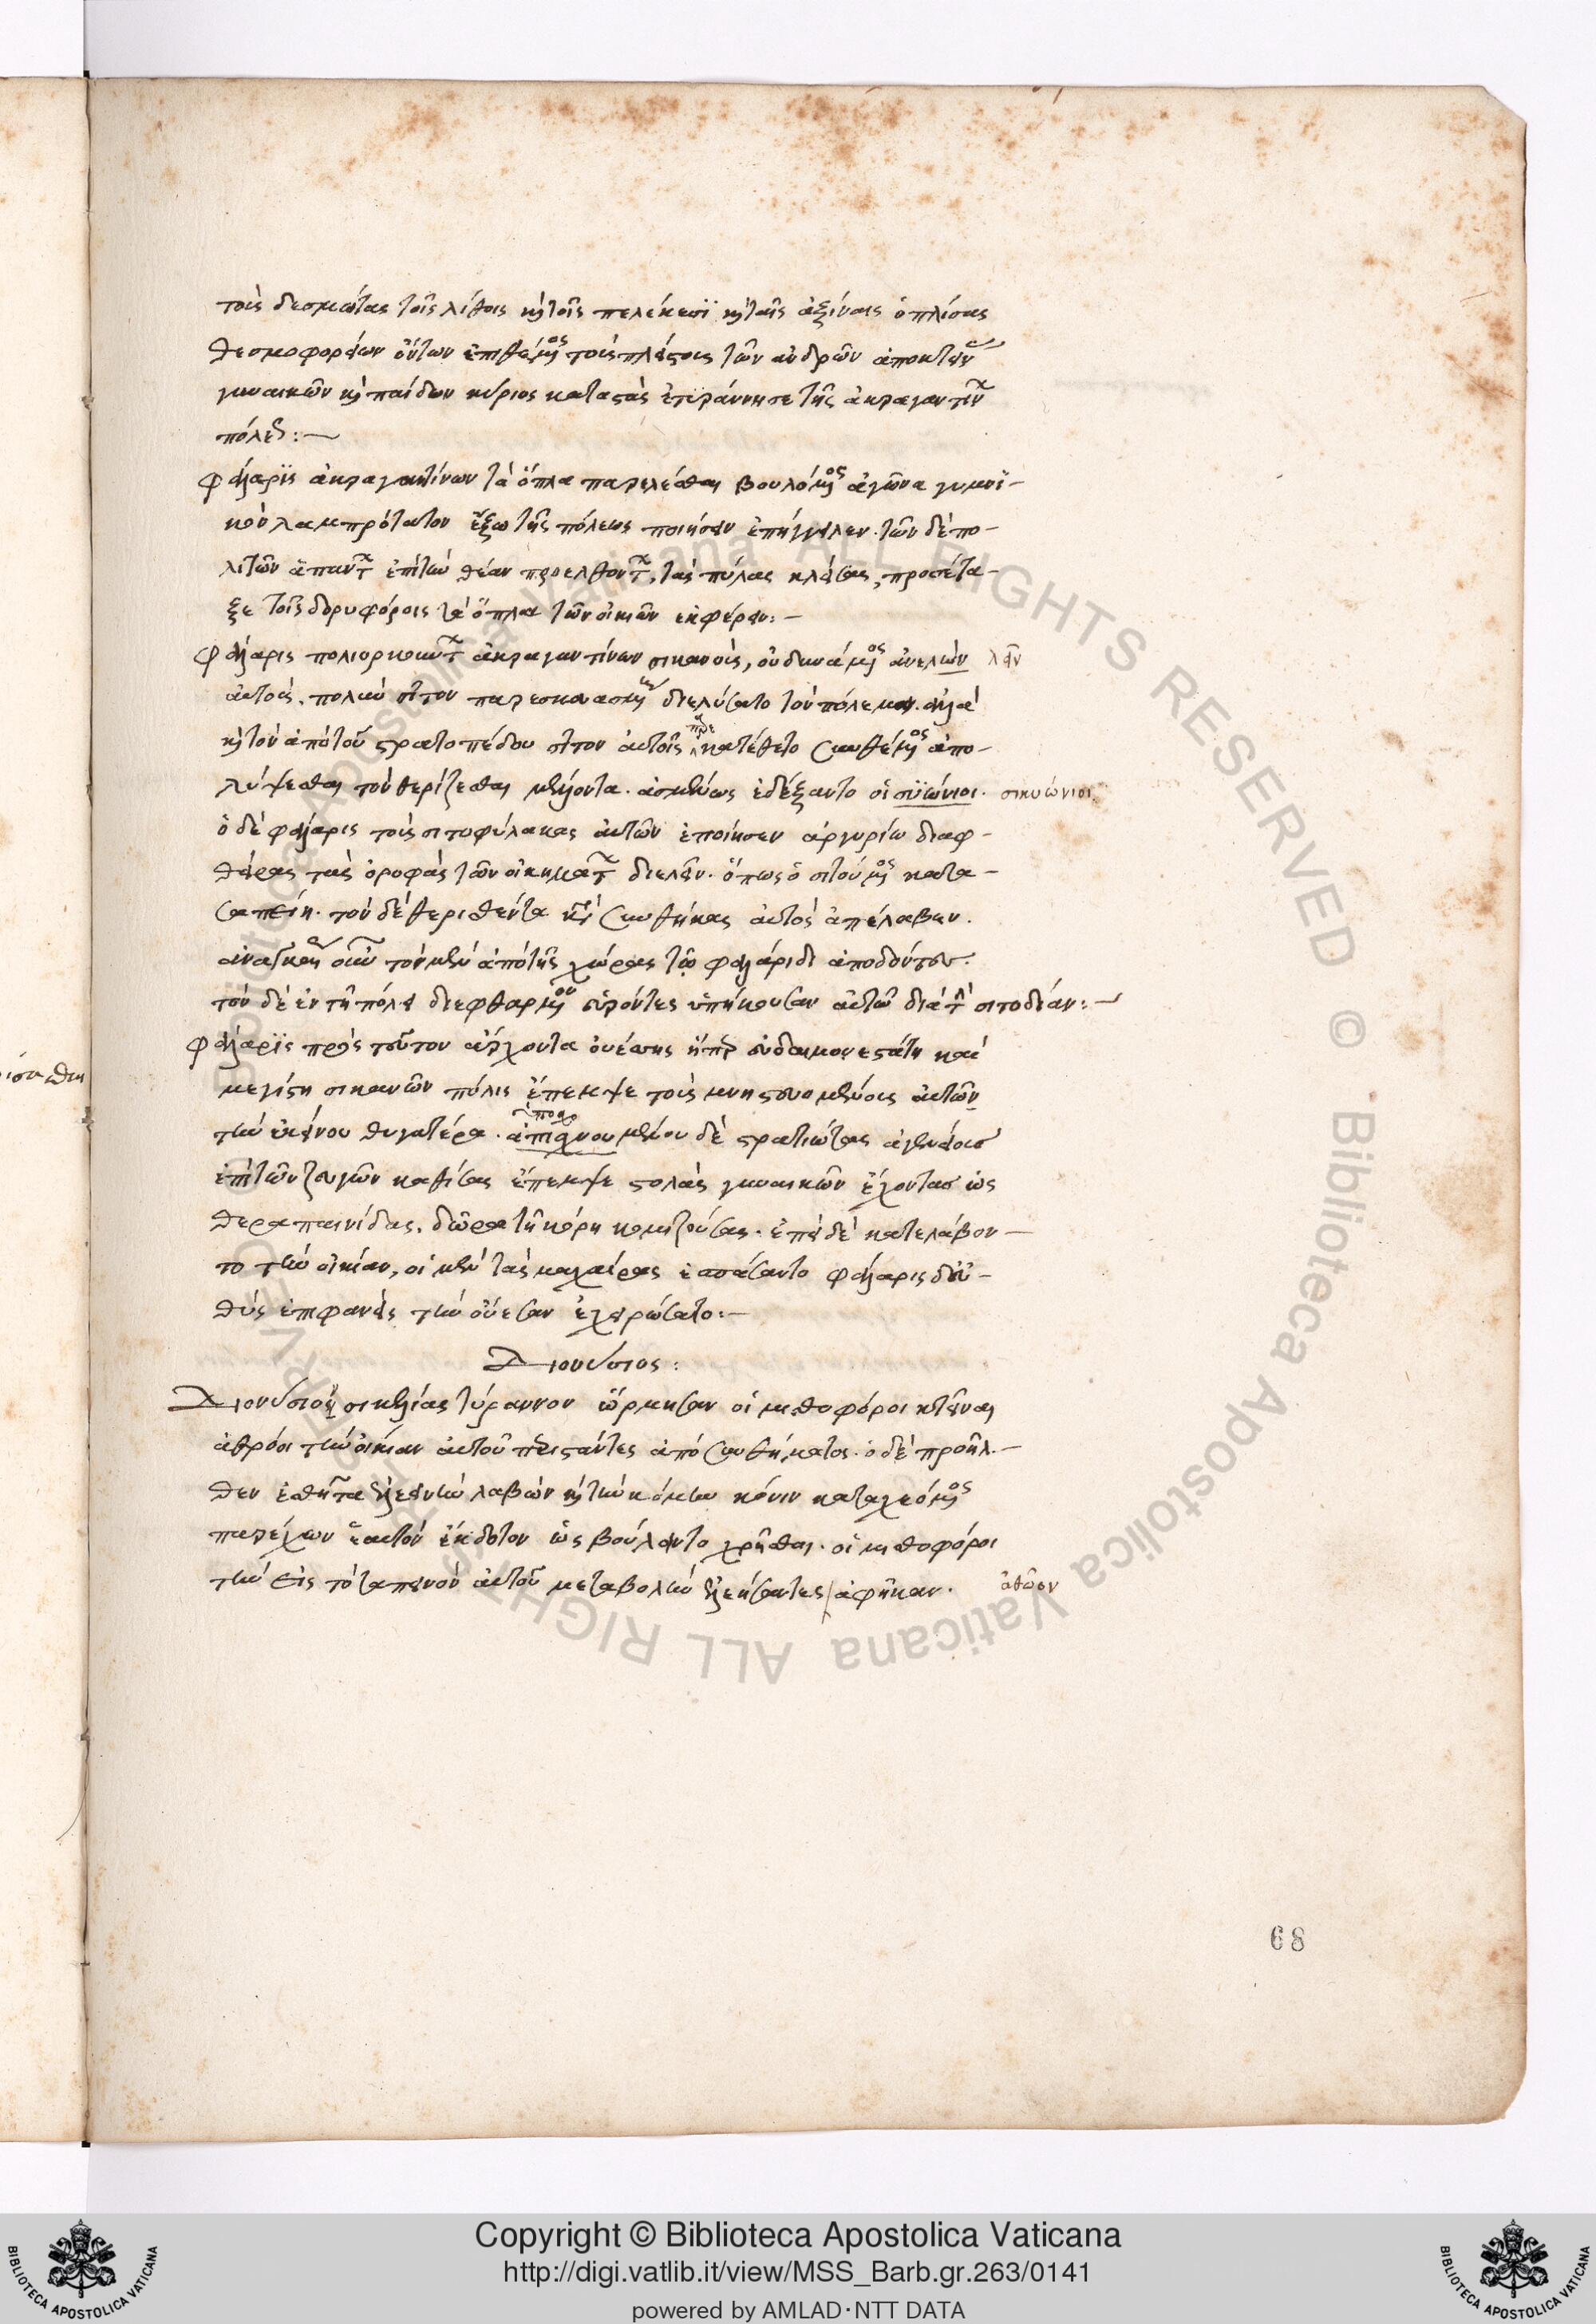 τοὺς δεσμώτας τοῖς λίθοις κὶ τοῖς πελέκεσϊ κὶ ταῖς ἀξίναις ὁπλίσας
θεσμοφορείων ὄντων ἐπιθέμενος τοὺς πλείστους τῶν ἀνδρῶν ἀποκτείνας
γυναικῶν κὶ παίδων κύριος καταστὰς ἐτυράννησε τῆς ἀκραγαντίνων
πόλεως:—
φάλαρϊς ἀκραγαντίνων τὰ ὅπλα παρελέσθαι βουλόμενος ἀγῶνα γυμνϊ-
κὸν λαμπρότατον ἔξω τῆς πόλεως ποιήσειν ἐπήγγειλεν. τῶν δὲ πο-
λιτῶν ἁπάντων ἐπὶ τὴν θέαν προελθόντων, τὰς πύλας κλείσας, προσέτα-
ξε τοῖς δορυφόροις τὰ ὅπλα τῶν οἰκιῶν ἐκφέρειν:—
φάλαρις πολιορκούντων ἀκραγαντίνων σικανοὺς, οὐ δυνάμενος ἀνελεῖν λαεῖν
αὐτοὺς. πολὺν σῖτον παρεσκευασμένους διελύσατο τὸν πόλεμον. ἀλλὰ
κὶ τὸν ἀπὸ τοῦ στρατοπέδου σῖτον αὐτοῖς παρακατέθετο συνθέμενος ἀπο-
λήψεσθαι τὸν θερίζεσθαι μέλλοντα. ἀσμένως ἐδέξαντο οἱ σϋιώνιοι. σικυώνιοι.
ὁ δὲ φάλαρις τοὺς σιτοφύλακας αὐτῶν ἐποίησεν ἀργυρίω διαφ-
θείρας τὰς ὀροφὰς τῶν οἰκημάτων διελεῖν. ὅπως ὁ σῖτος κατα-
σαπείη. τὸν δὲ θερισθέντα κατὰ συνθήκας αὐτὸς ἀπέλαβεν.
ἀναγκαίως οὖν τὸν μὲν ἀπὸ τῆς χώρας τῷ φαλάριδι ἀποδόντες.
τὸν δὲ ἐν τῆ πόλει διεφθαρμένον εὑρόντες ὑπήκουσαν αὐτῶ διὰ τὴν σιτοδείαν:—
φάλαρϊς πρὸς τοῦτον ἄρχοντα οὐέσσης ἥπερ εὐδαιμονεστάτη καὶ
μεγίστη σικανῶν πόλις ἔπεμψε τοὺς μνηστευομένους αὐτῶν
τὴν ἐκείνου θυγατέρα. ἀπιχνουμένου δὲ στρατιώτας ἀγενείουσ
ἐπὶ τῶν ζευγῶν καθίσας ἔπεμψε στολὰς γυναικῶν ἔχοντασ ὡς
θεραπαινίδας, δῶρα τῆ κόρη κομιζούσας. ἐπεὶ δὲ κατελάβον-
το τὴν οἰκίαν, οἱ μὲν τὰς μαχαίρας ἐσπάσαντο φάλαρις δ' εὐ-
θὺς ἐπιφανεὶς τὴν οὔεσαν ἐχειρώσατο:—
Διονύσιος:
Διονύσιον σικελίας τύραννον ὥρμησαν οἱ μισθοφόροι κτεῖναι
ἀθρόοι τὴν οἰκίαν αὐτοῦ περιστάντες ἀπὸ συνθήματος. ὁ δὲ προῆλ-
θεν ἐσθῆτα ἐλεεινὴν λαβὼν κὶ τὴν κόμην κόνιν καταχεόμενος
παρέχων ἑαυτὸν ἔκδοτον ὡς βούλοιντο χρῆσθαι. οἱ μισθοφόροι
τὴν εἰς τὸ ταπεινὸν αὐτοῦ μεταβολὴν ἐλεήσαντες ἀφῆκαν. ἀθῶον
68
Copyright © Biblioteca Apostolica Vaticana
http://digi.vatlib.it/view/MSS_Barb.gr.263/0141
powered by AMLAD·NTT DATA